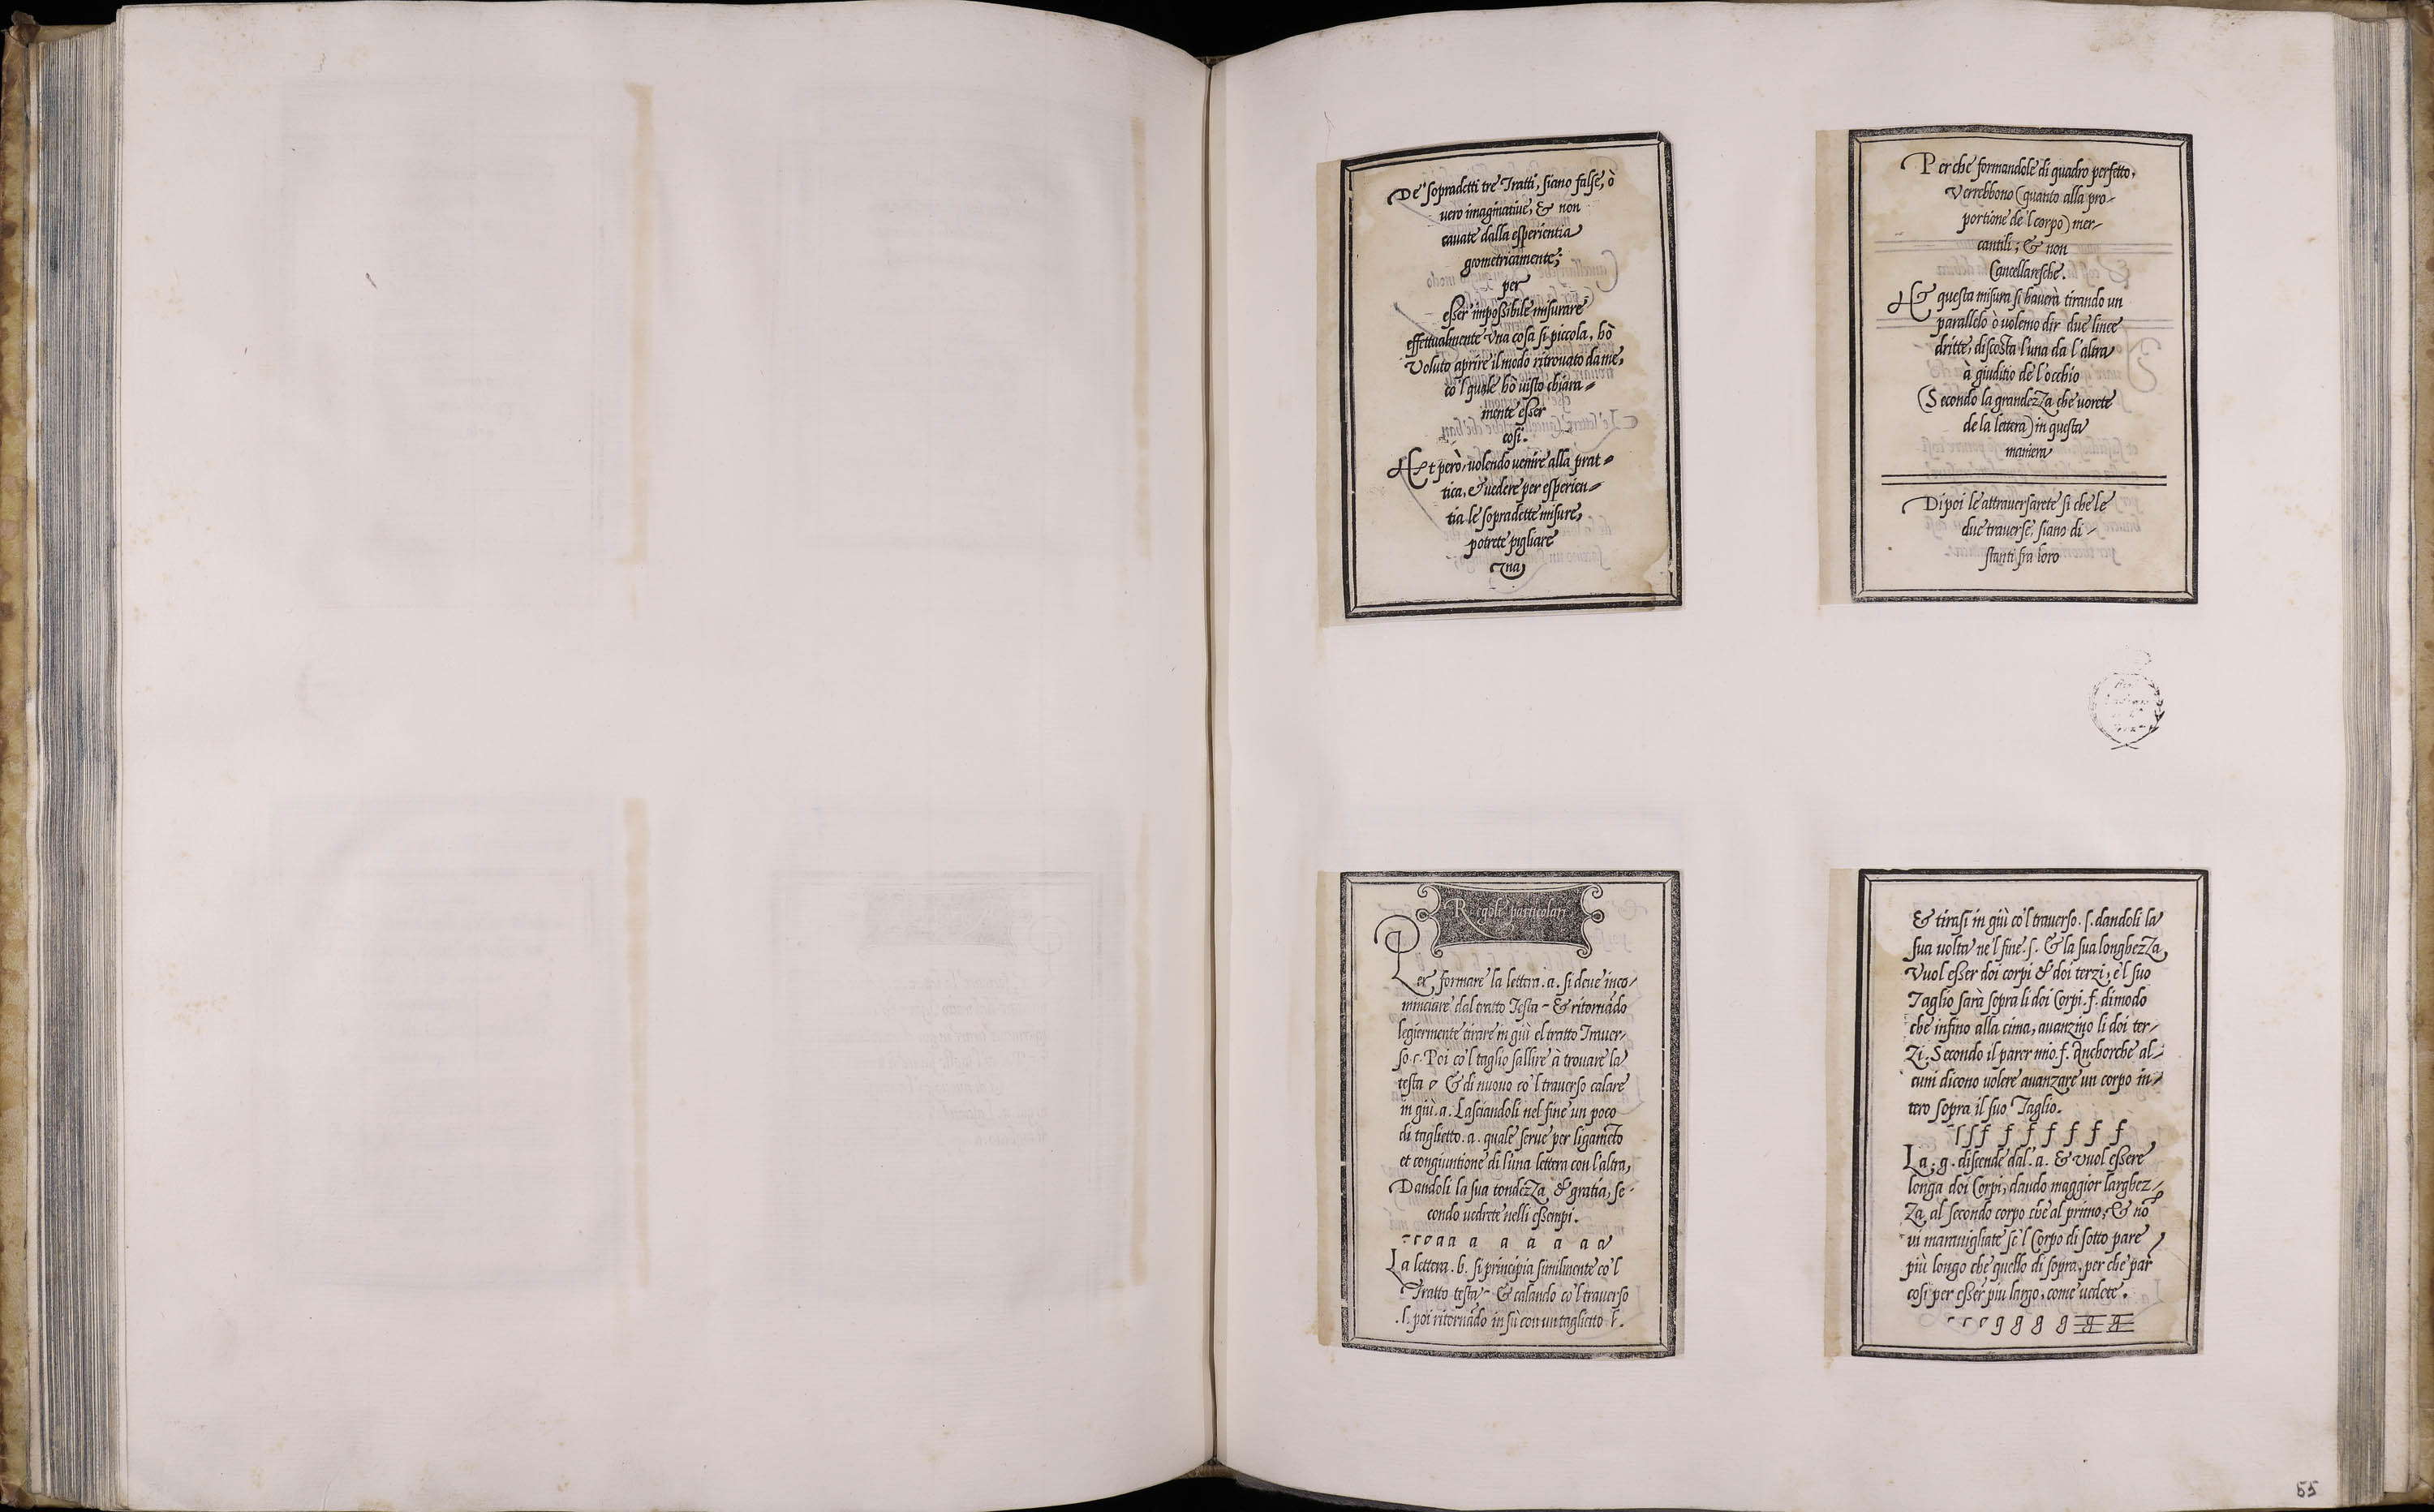 De' sopradetti tre Tratti, siano false, ò
vero imaginative, & non
cavate dalla esperientia
geometricamente;
per
esser impossibile misurare
effettualmente una cosa si piccola, hò
Voluto aprire il modo ritrovato da me,
cò'l quale hò visto chiara-
mente esser
cosi.
Et però, volendo venire alla prat-
tica, & vedere per esperien-
tia le sopradette misure,
potrete pigliare
una
Perche formandole di quadro perfetto,
Verrebbono (quanto alla pro-
portione de'l corpo) mer-
cantili; & non
Cancellaresche.
Et questa misura si haverà tirando un
parallelo ò volemo dir due linee
dritte, discosta l'una da l'altra
à giuditio de l'occhio
(Secondo la grandezza che vorete
de la lettera) in questa
maniera
Dipoi le attraversarete si che le
due traverse, siano di-
stanti fra loro
Regole particolari
Per formare la lettera .a. si deve inco-
minciare dal tratto Testa - & ritornādo
legiermente tirare in giù el tratto Traver-
so. Poi cò'l taglio sallire à trovare la
testa & di nuovo cò'l traverso calare
in giù .a. Lasciandoli nel fine un poco
di taglietto .a. quale serve per ligamēto
et congiuntione di l'una lettera con l'altra,
Dandoli la sua tondezza & gratia, se-
condo vedrete nelli essempi.
a a a a a a a a
La lettera .b. si principia similmente cò'l
Tratto testa - & calando cò'l traverso
.l. poi ritornādo in sù con un taglietto
& tirasi in giù cò'l traverso .ſ. dandoli la
sua volta ne'l fine .ſ. & la sua longhezza,
Vuol esser doi corpi & doi terzi, e'l suo
Taglio sarà sopra li doi Corpi .f. di modo
che infino alla cima, avanzino li doi ter-
zi. Secondo il parer mio .f. Anchorche al-
cuni dicono volere avanzare un corpo in-
tero sopra il suo Taglio.
ſ ſ f f f f f f f
La .g. discende dal .a. & vuol essere
longa doi Corpi, dando maggior larghez-
za al secondo corpo che al primo; & nō
vi maravigliate se'l Corpo di sotto pare
più longo che quello di sopra, per che par
cosi per esser più largo, come vedete.
g g g g g g
55